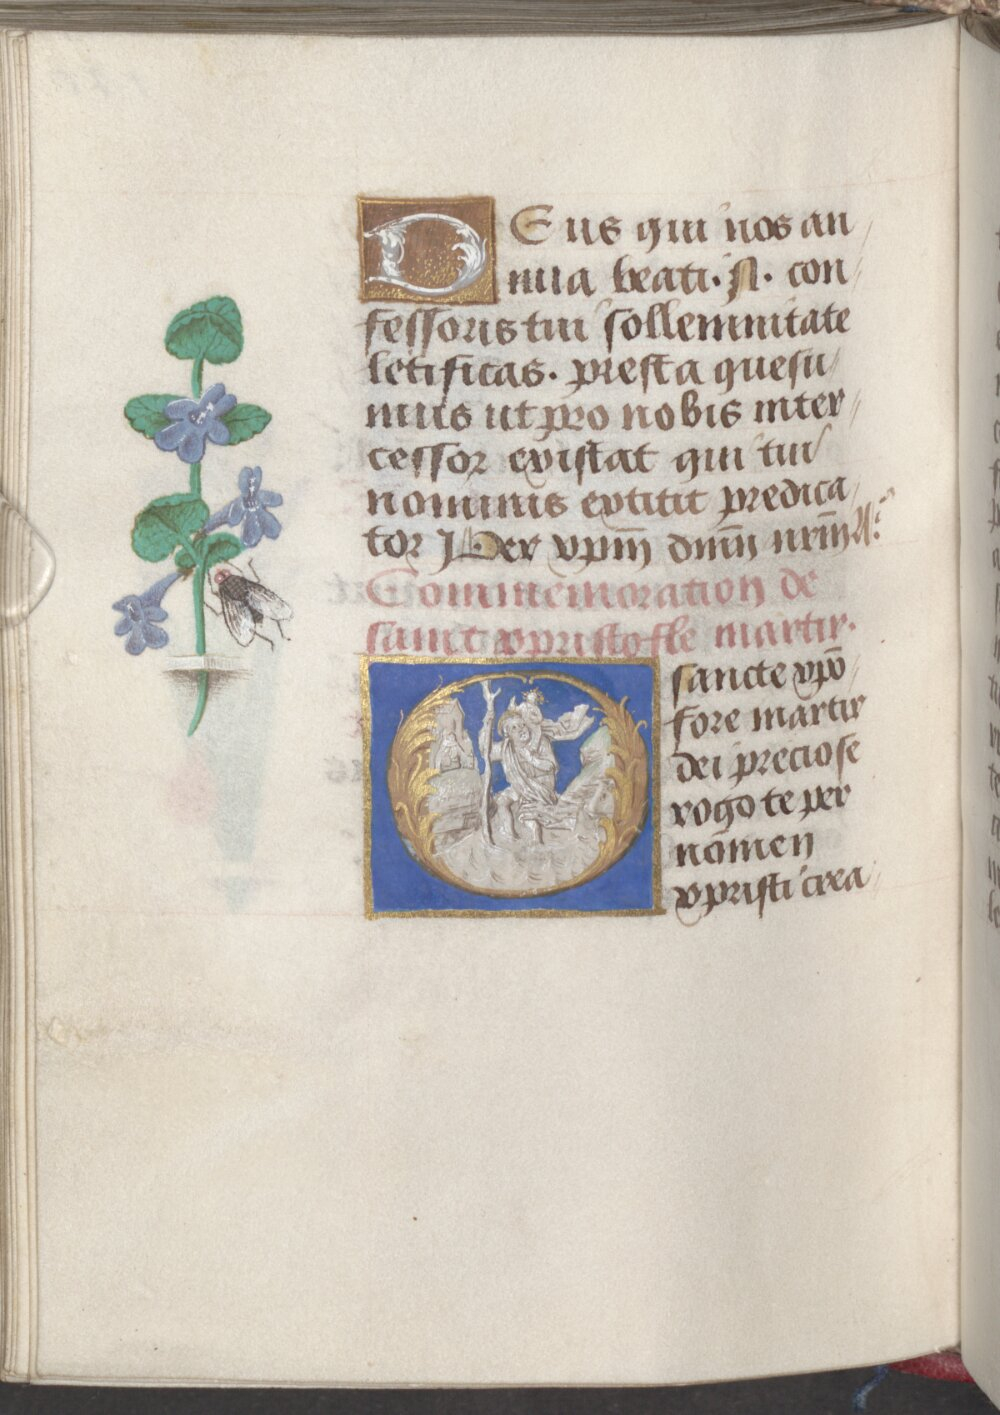 Deus qui nos an
nua beati. N. con
fessoris tui sollemnitate
letificas. presta quesu
mus ut pro nobis inter
cessor existat qui tui
nominis extitit predica
tor Per xpm̄ dn̄m nrm̄
Commemoration de
sainct xpristofle martir.
O sancte xp̄o
fore martir
dei preciose
rogo te per
nomen
xpristi crea